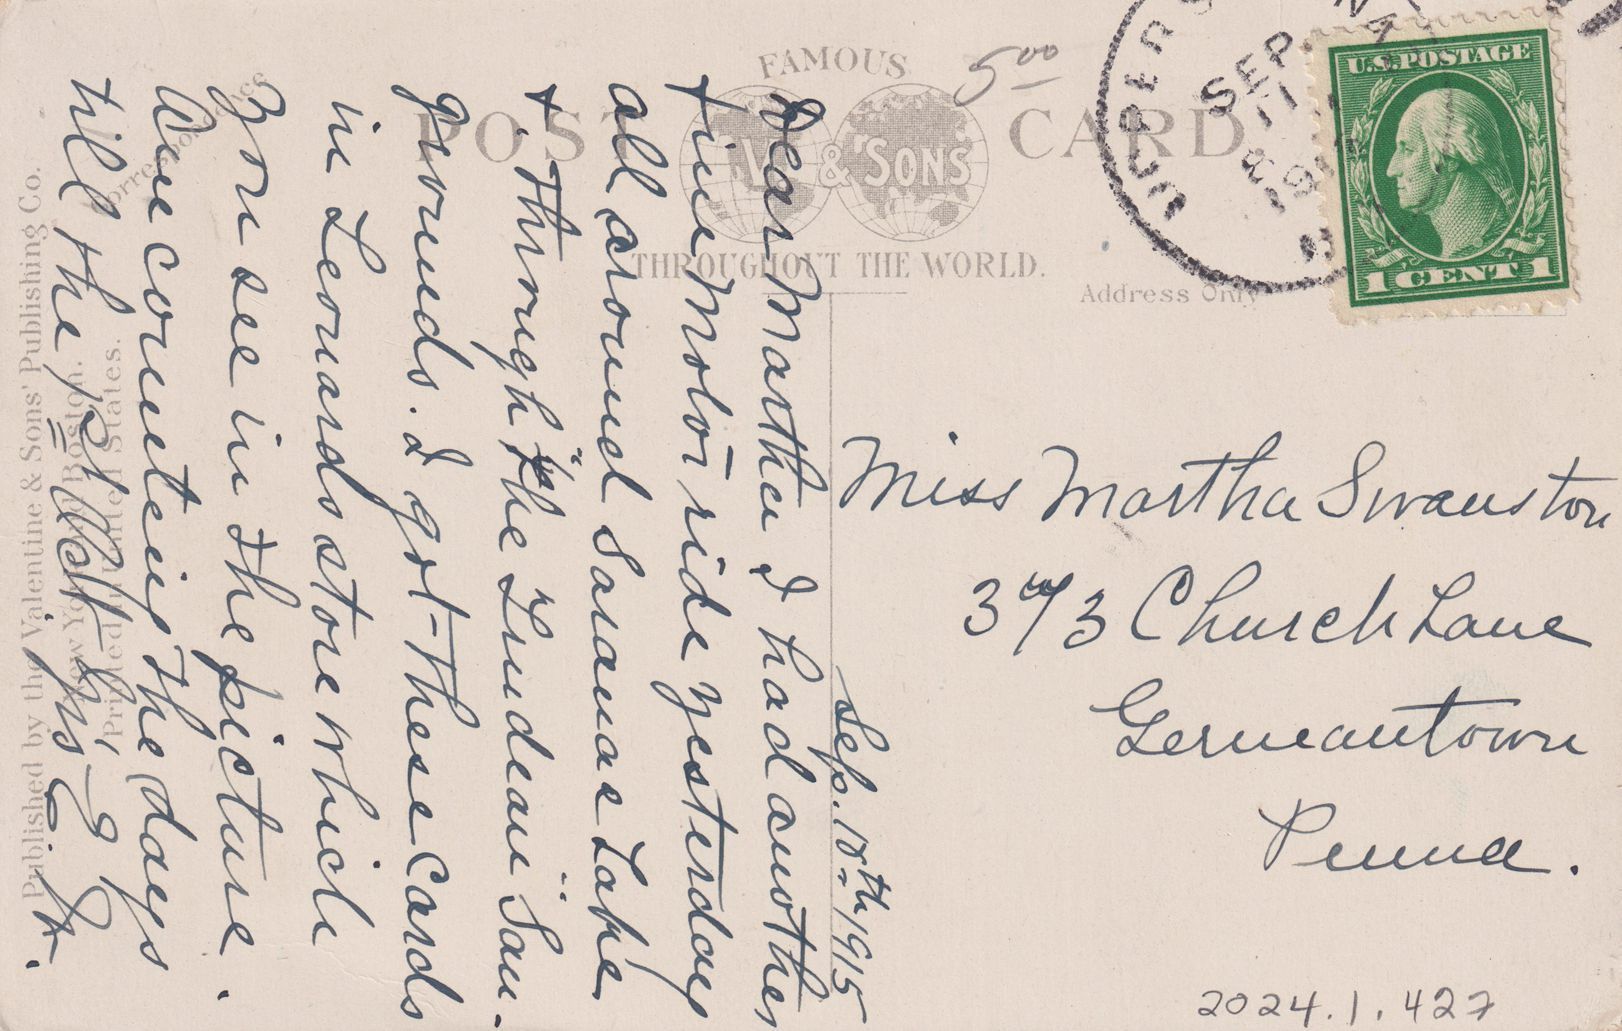 FAMOUS
POST CARD
& SONS
THROUGHOUT THE WORLD.
Address Only
Correspondence
5.00
UPPER
SEP
11
U.S. POSTAGE
1 CENT 1
Sep. 10th 1915
Dear Martha I had another
fine Motor ride yesterday
all around Saranac Lake
& through "the Trudeau" San.
grounds. I got these cards
in Leonards store which
you see in the picture.
Am counting the days
till the
Miss Martha Swanston
373 Church Lane
Germantown
Penna.
Published by the Valentine & Sons' Publishing Co.
New York and Boston.
Printed in United States.
2024.1.427